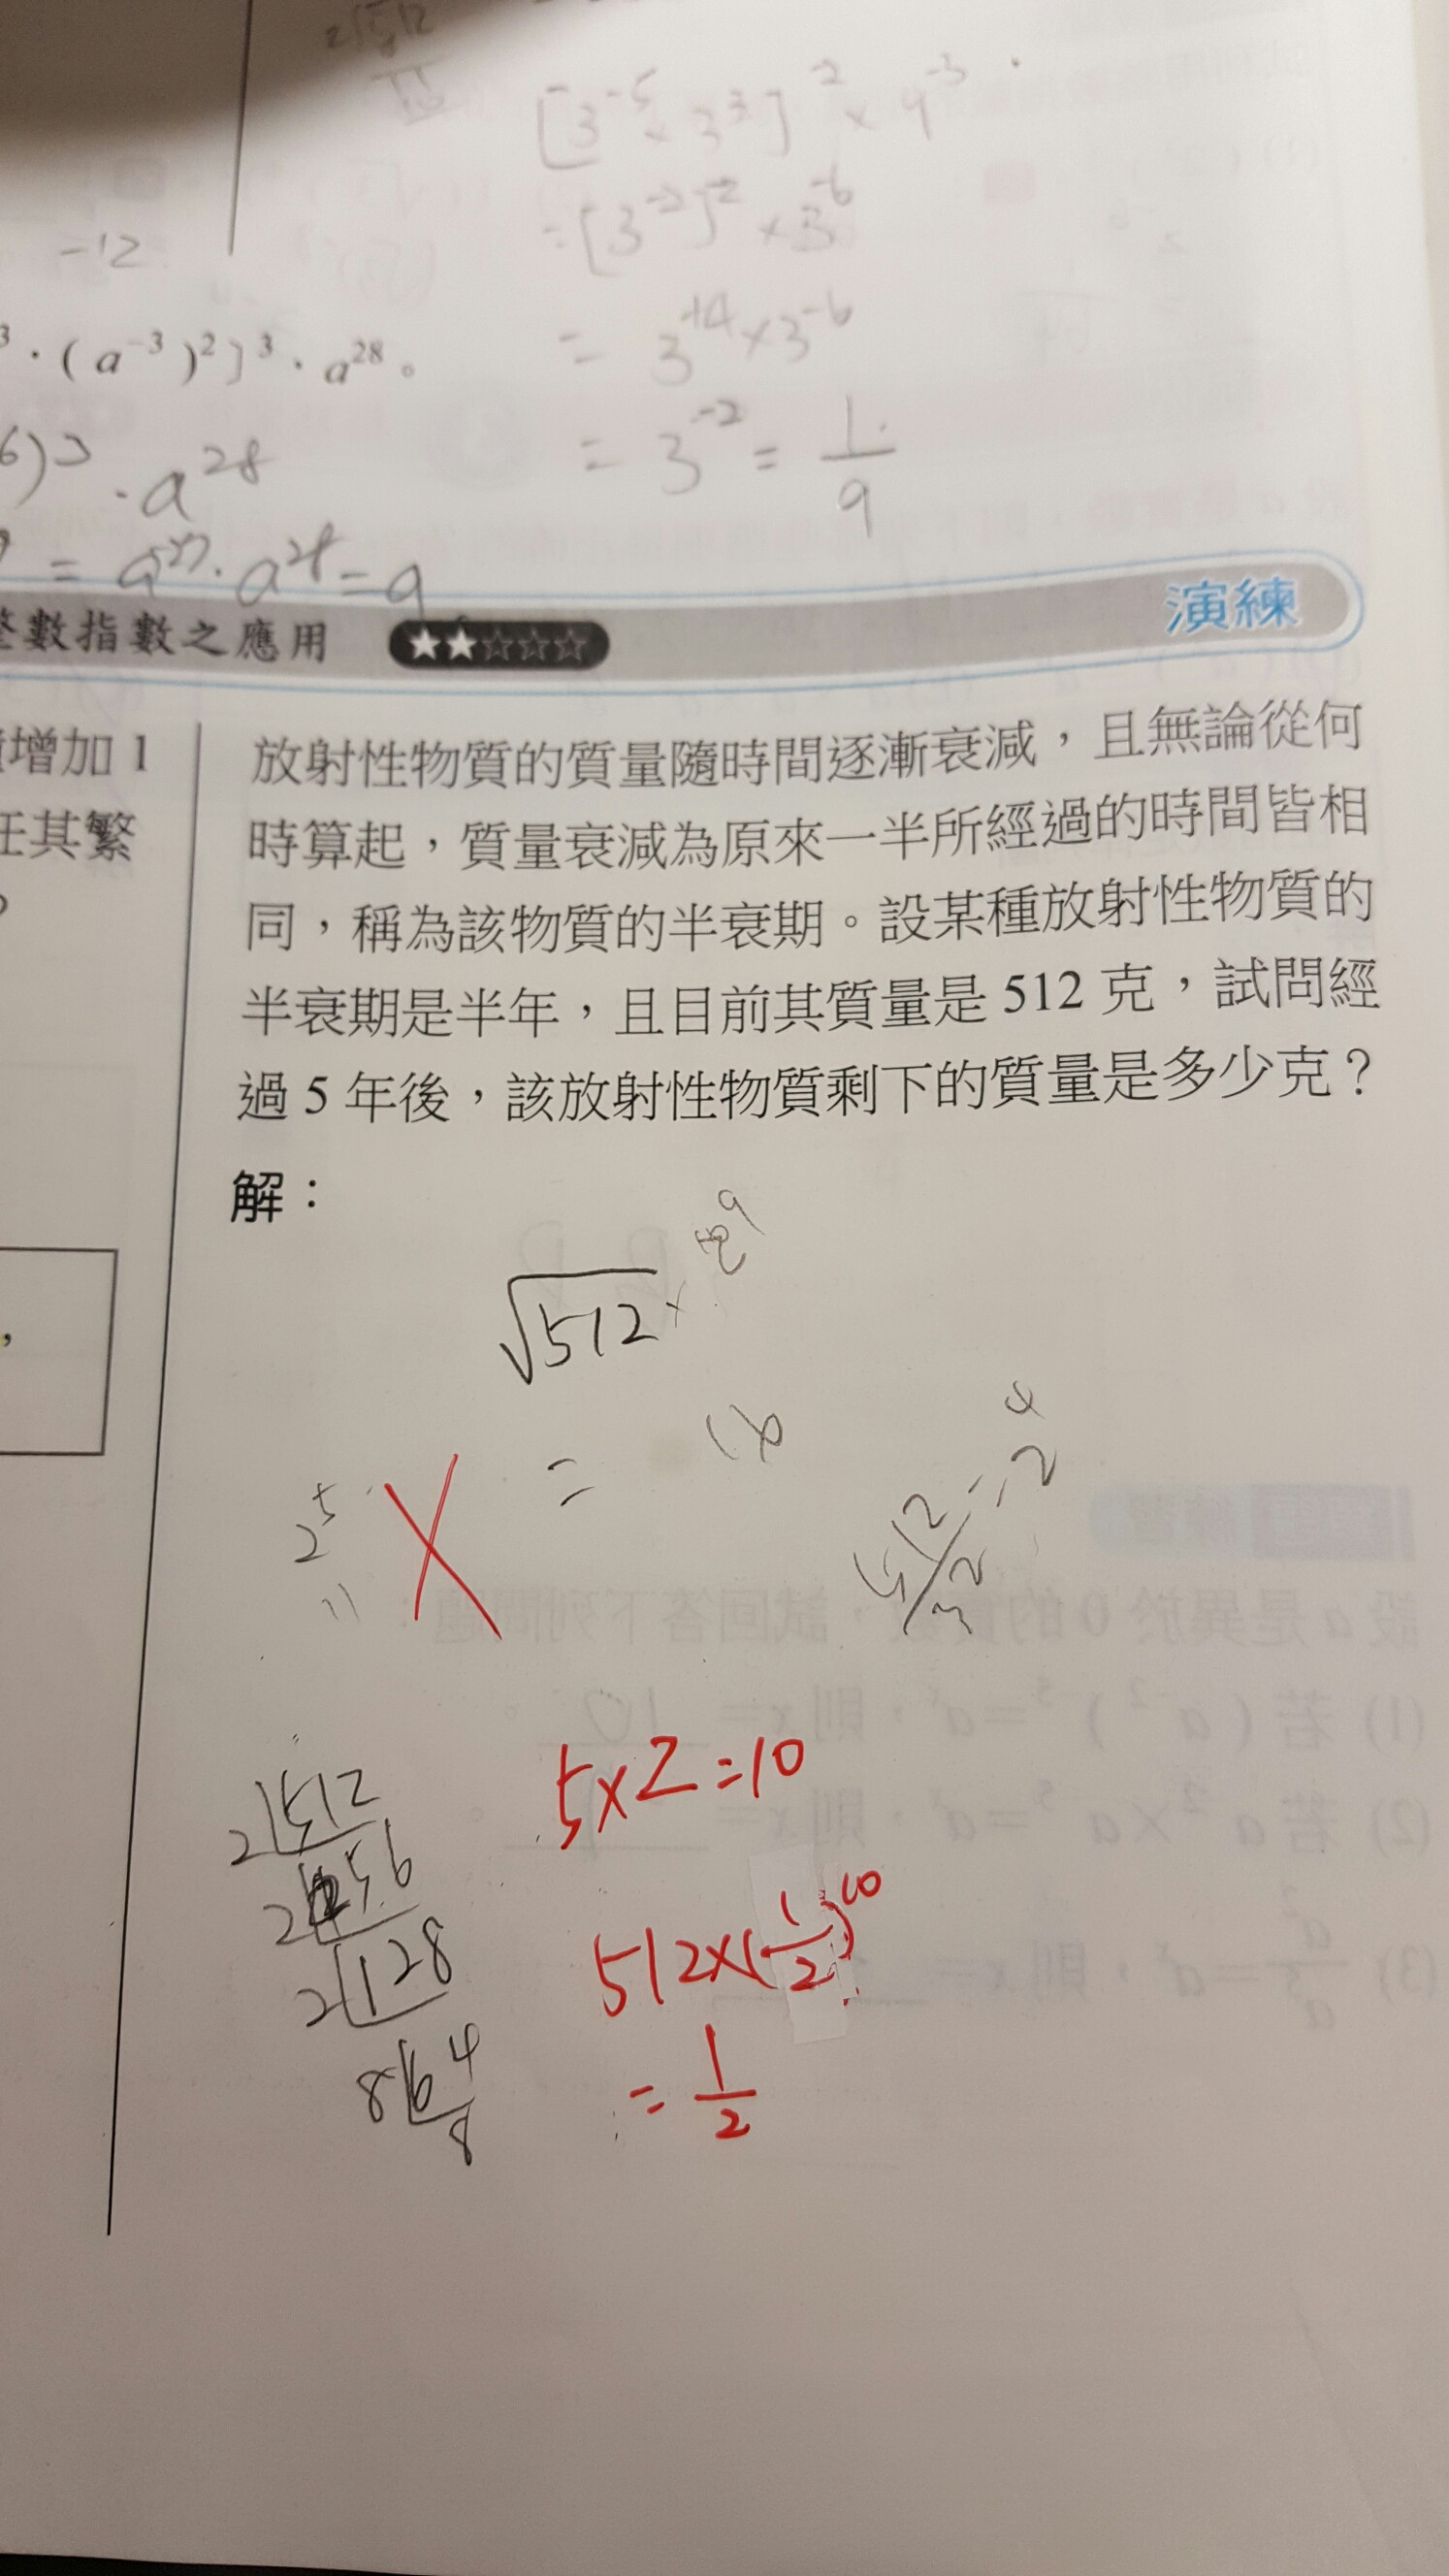 [3⁻⁵ × 3³]⁻² × 9⁻³
= [3⁻²]⁻² × 3⁻⁶
-12
= 3⁺⁴ × 3⁻⁶
³ · ( a⁻³ )² ] ³ · a²⁸ 。
= 3⁻² = 1/9
6)³ · a²⁸
= a²⁷ · a²⁸ = a
數指數之應用 ★★☆☆☆
演練
增加 1
任其繁
放射性物質的質量隨時間逐漸衰減,且無論從何
時算起,質量衰減為原來一半所經過的時間皆相
同,稱為該物質的半衰期。設某種放射性物質的
半衰期是半年,且目前其質量是 512 克,試問經
過 5 年後,該放射性物質剩下的質量是多少克?
解:
√512 ×
= 16
2⁵
=
512/32 = 2⁴
2 512
2 256
2 128
8 64
8
5×2=10
512×(1/2)¹⁰
= 1/2